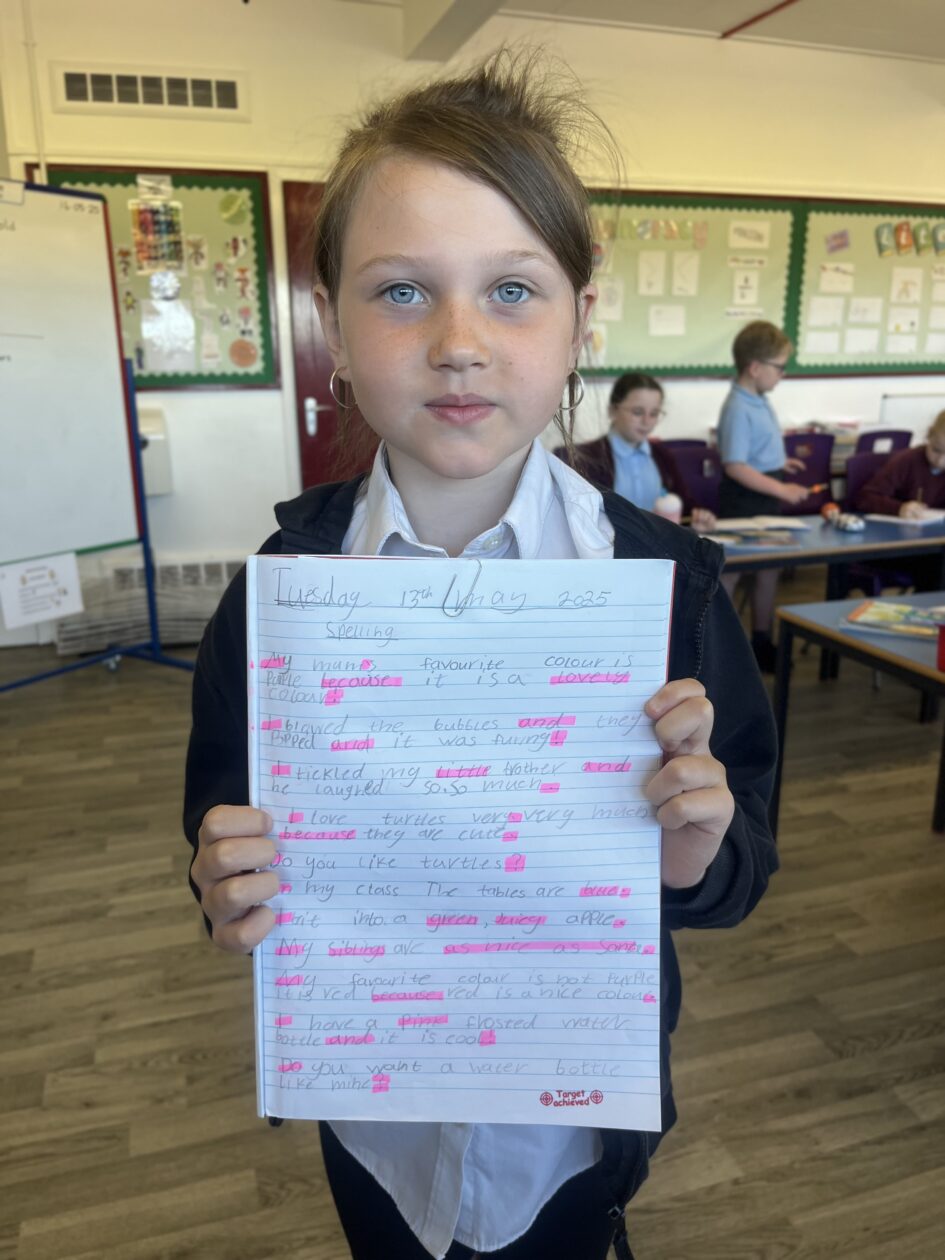 Tuesday 13th may 2025
Spelling
My mam's favourite colour is
purple because it is a lovely
colour.
I blawed the bubbles and they
Popped and it was funny!
I tickled my little brother and
he laughed so, so much.
I love turtles very, very much
because they are cute.
Do you like turtles?
In my class The tables are blue.
I bit into a green, juicy apple.
My siblings are as nice as Santa.
My favourite colour is not purple
it is red because red is a nice colour.
I have a Pink frosted water
bottle and it is cool!
Do you want a water bottle
like mine?
Target
achieved